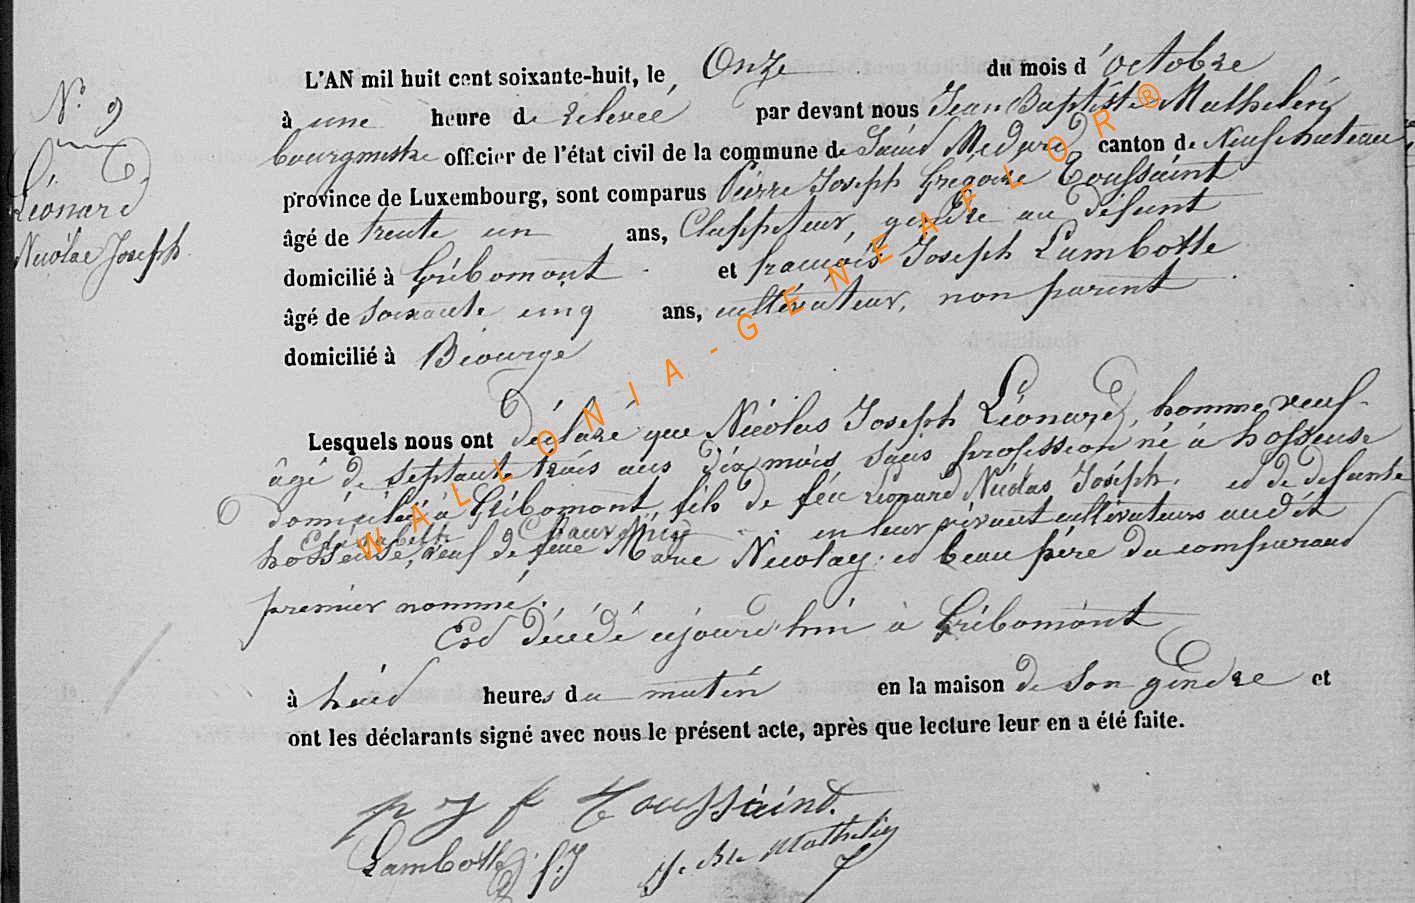 N° 9
Léonard
Nicolas Joseph
L'AN mil huit cent soixante-huit, le Onze du mois d'octobre
à une heure de relevée par devant nous Jean Baptiste Mathelin
bourgmestre officier de l'état civil de la commune de Saint Médard canton de Neufchateau
province de Luxembourg, sont comparus Pierre Joseph Grégoire Toussaint
âgé de trente un ans, Clappteur, gendre au défunt
domicilié à Gribomont et francois Joseph Lambotte
âgé de soixante cinq ans, cultivateur, non parent
domicilié à Biourge
Lesquels nous ont déclaré que Nicolas Joseph Léonard, homme veuf
âgé de septante trois ans dix mois sans profession né à hosseuse
domicilié à Gribomont, fils de feu Léonard Nicolas Joseph. et de defunte
Elisabeth en leur vivant cultivateurs audit
hosseuse, veuf de feue Marie Nicolay. et beau père du comparant
premier nommé.
Est décédé aujourd'hui à Gribomont
à huit heures du matin en la maison de son gendre et
ont les déclarants signé avec nous le présent acte, après que lecture leur en a été faite.
p J f Toussaint.
Lambotte f.J J. Bte Mathelin
WALLONIA-GENEAFLOR®